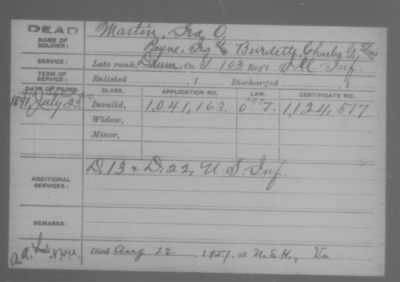 DEAD
NAME OF SOLDIER: Martin, Ira O.
Payne, Ira C. Burdette, Charles G.
SERVICE: Late rank, Drum Co. I, 103 Reg't Ill Inf.
TERM OF SERVICE: Enlisted , 1 Discharged , 1
DATE OF FILING. CLASS. APPLICATION NO. LAW. CERTIFICATE NO.
1891, July 23 Invalid, 1,041,163. 1,124,517
Widow,
Minor,
ADDITIONAL SERVICES: D. 13 & D. 22, U. S. Inf.
REMARKS:
Died Aug 12, 1927, at N.S.H., Va